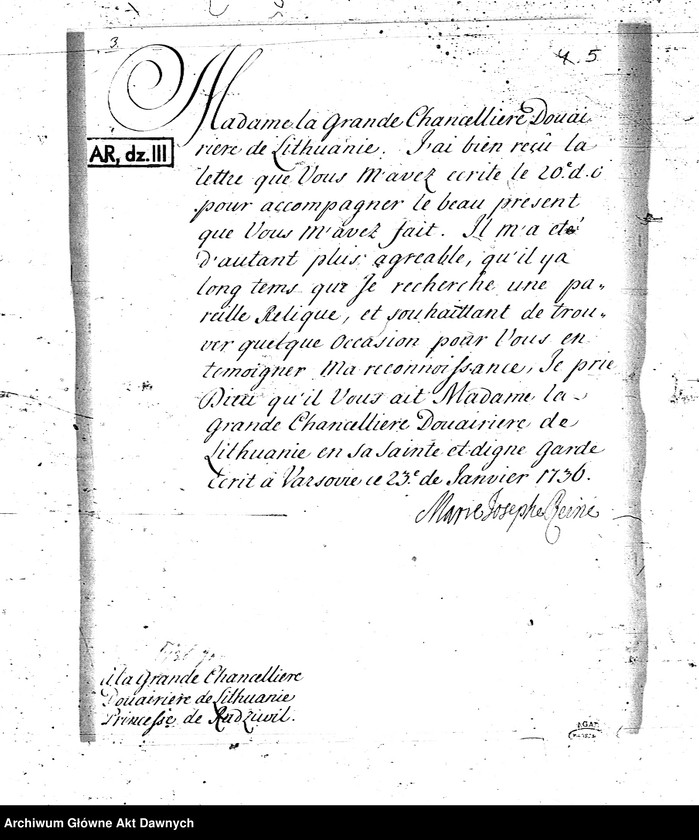 3.
4 5
Madame la Grande Chancelliere Douai
riere de Lithuanie. J'ai bien reçû la
AR, dz. III
lettre que Vous m'avez ecrite le 20.e d. c
pour accompagner le beau present
que Vous m'avez fait. Il m'a eté
d'autant plus agreable, qu'il ya
long tems que Je recherche une pa=
reille Relique, et souhaittant de trou=
ver quelque Occasion pour Vous en
temoigner Ma reconnoissance, Je prie
Dieu qu'il Vous ait Madame la
Grande Chancelliere Douairiere de
Lithuanie en sa sainte et digne Garde
Ecrit à Varsovie ce 23.e de Janvier 1736.
Marie Josephe Reine
à la Grande Chancelliere
Douairiere de Lithuanie
Princesse de Radziwil.
AGAD
Archiwum Główne Akt Dawnych